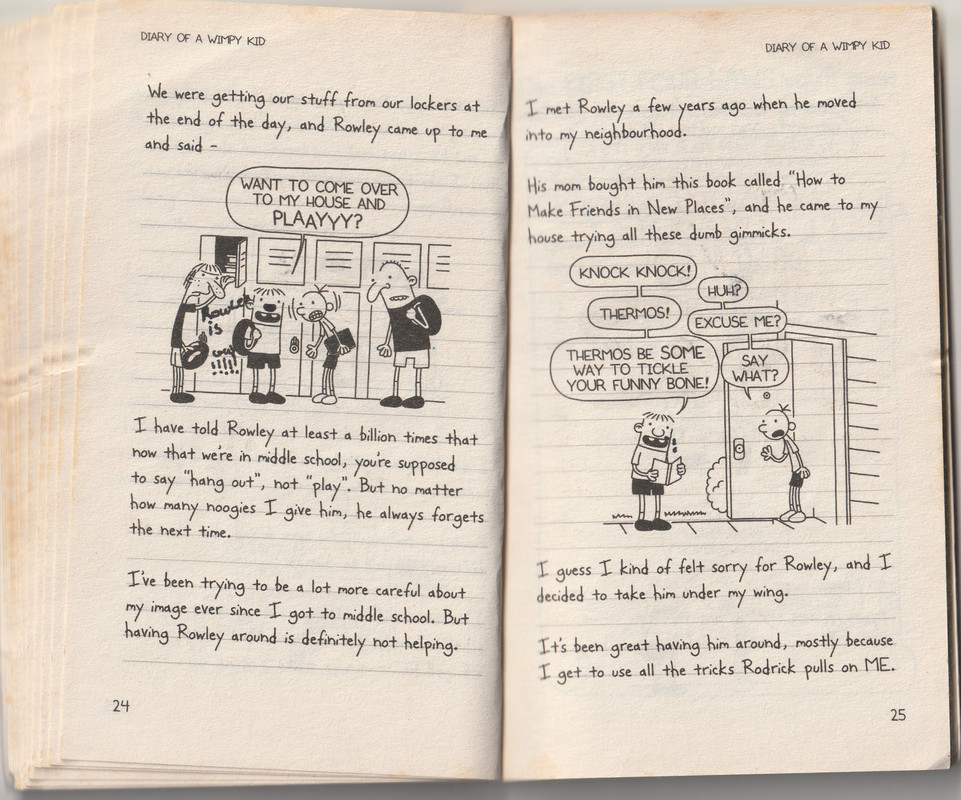 DIARY OF A WIMPY KID
We were getting our stuff from our lockers at
the end of the day, and Rowley came up to me
and said -
WANT TO COME OVER
TO MY HOUSE AND
PLAAYYY?
Rowley
is
!!!!!
I have told Rowley at least a billion times that
now that we're in middle school, you're supposed
to say "hang out", not "play". But no matter
how many noogies I give him, he always forgets
the next time.
I've been trying to be a lot more careful about
my image ever since I got to middle school. But
having Rowley around is definitely not helping.
24
DIARY OF A WIMPY KID
I met Rowley a few years ago when he moved
into my neighbourhood.
His mom bought him this book called "How to
Make Friends in New Places", and he came to my
house trying all these dumb gimmicks.
KNOCK KNOCK!
HUH?
THERMOS!
EXCUSE ME?
THERMOS BE SOME
WAY TO TICKLE
YOUR FUNNY BONE!
SAY
WHAT?
I guess I kind of felt sorry for Rowley, and I
decided to take him under my wing.
It's been great having him around, mostly because
I get to use all the tricks Rodrick pulls on ME.
25